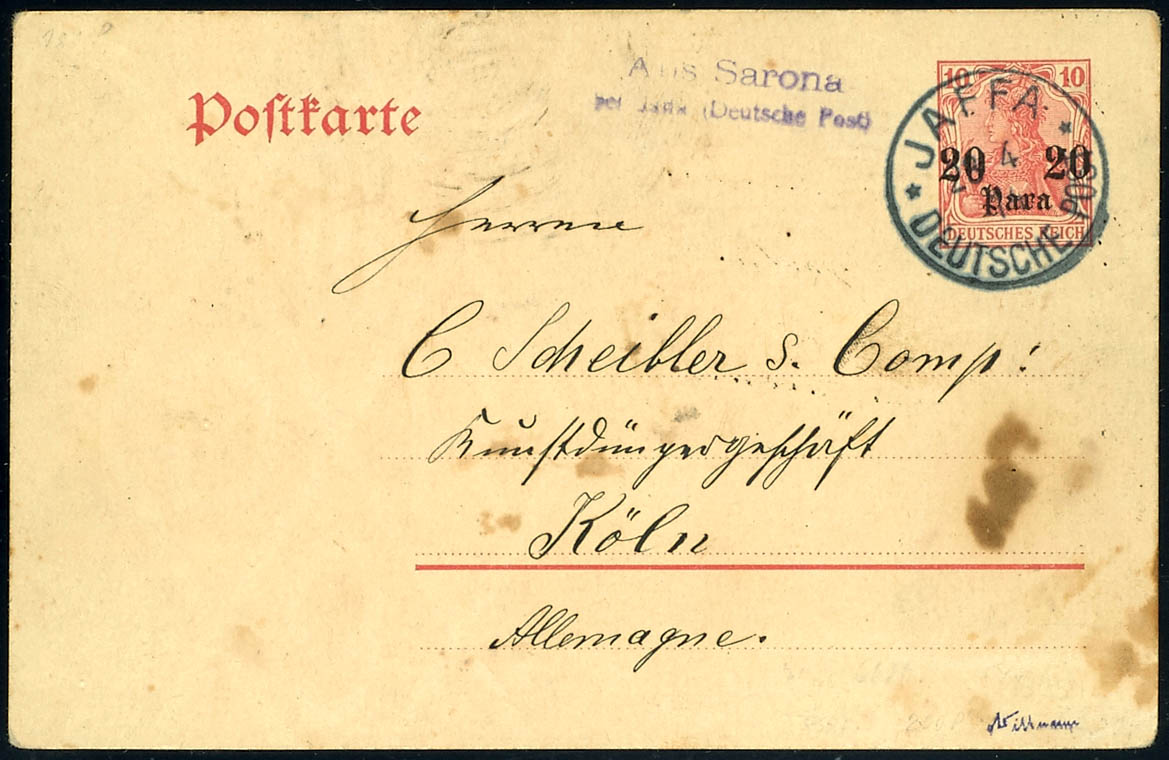 Postkarte
Aus Sarona
per Jaffa (Deutsche Post)
10 10
20 20
Para
DEUTSCHES REICH
JAFFA
4
DEUTSCHE POST
Herren
C Scheibler & Comp:
Kunstdüngergeschäft
Köln
Allemagne.